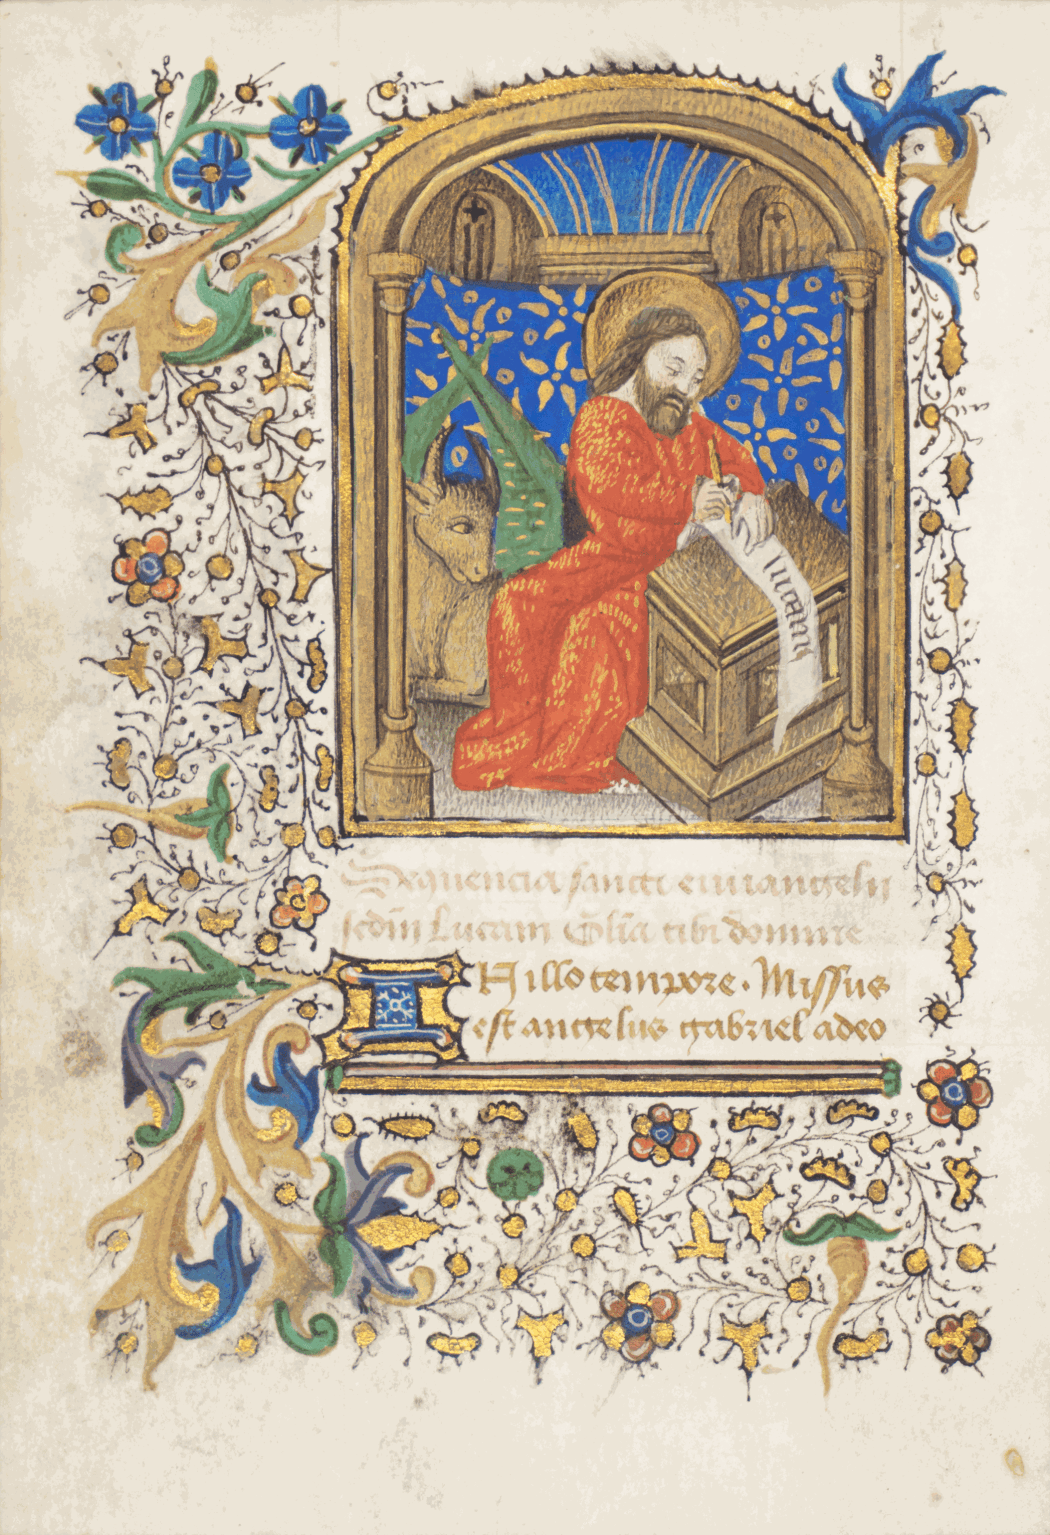 lucam
Sequencia sancti euuangelii
scdm̄ Lucam Gl̄ia tibi domine
In illo tempore. Missus
est angelus gabriel adeo